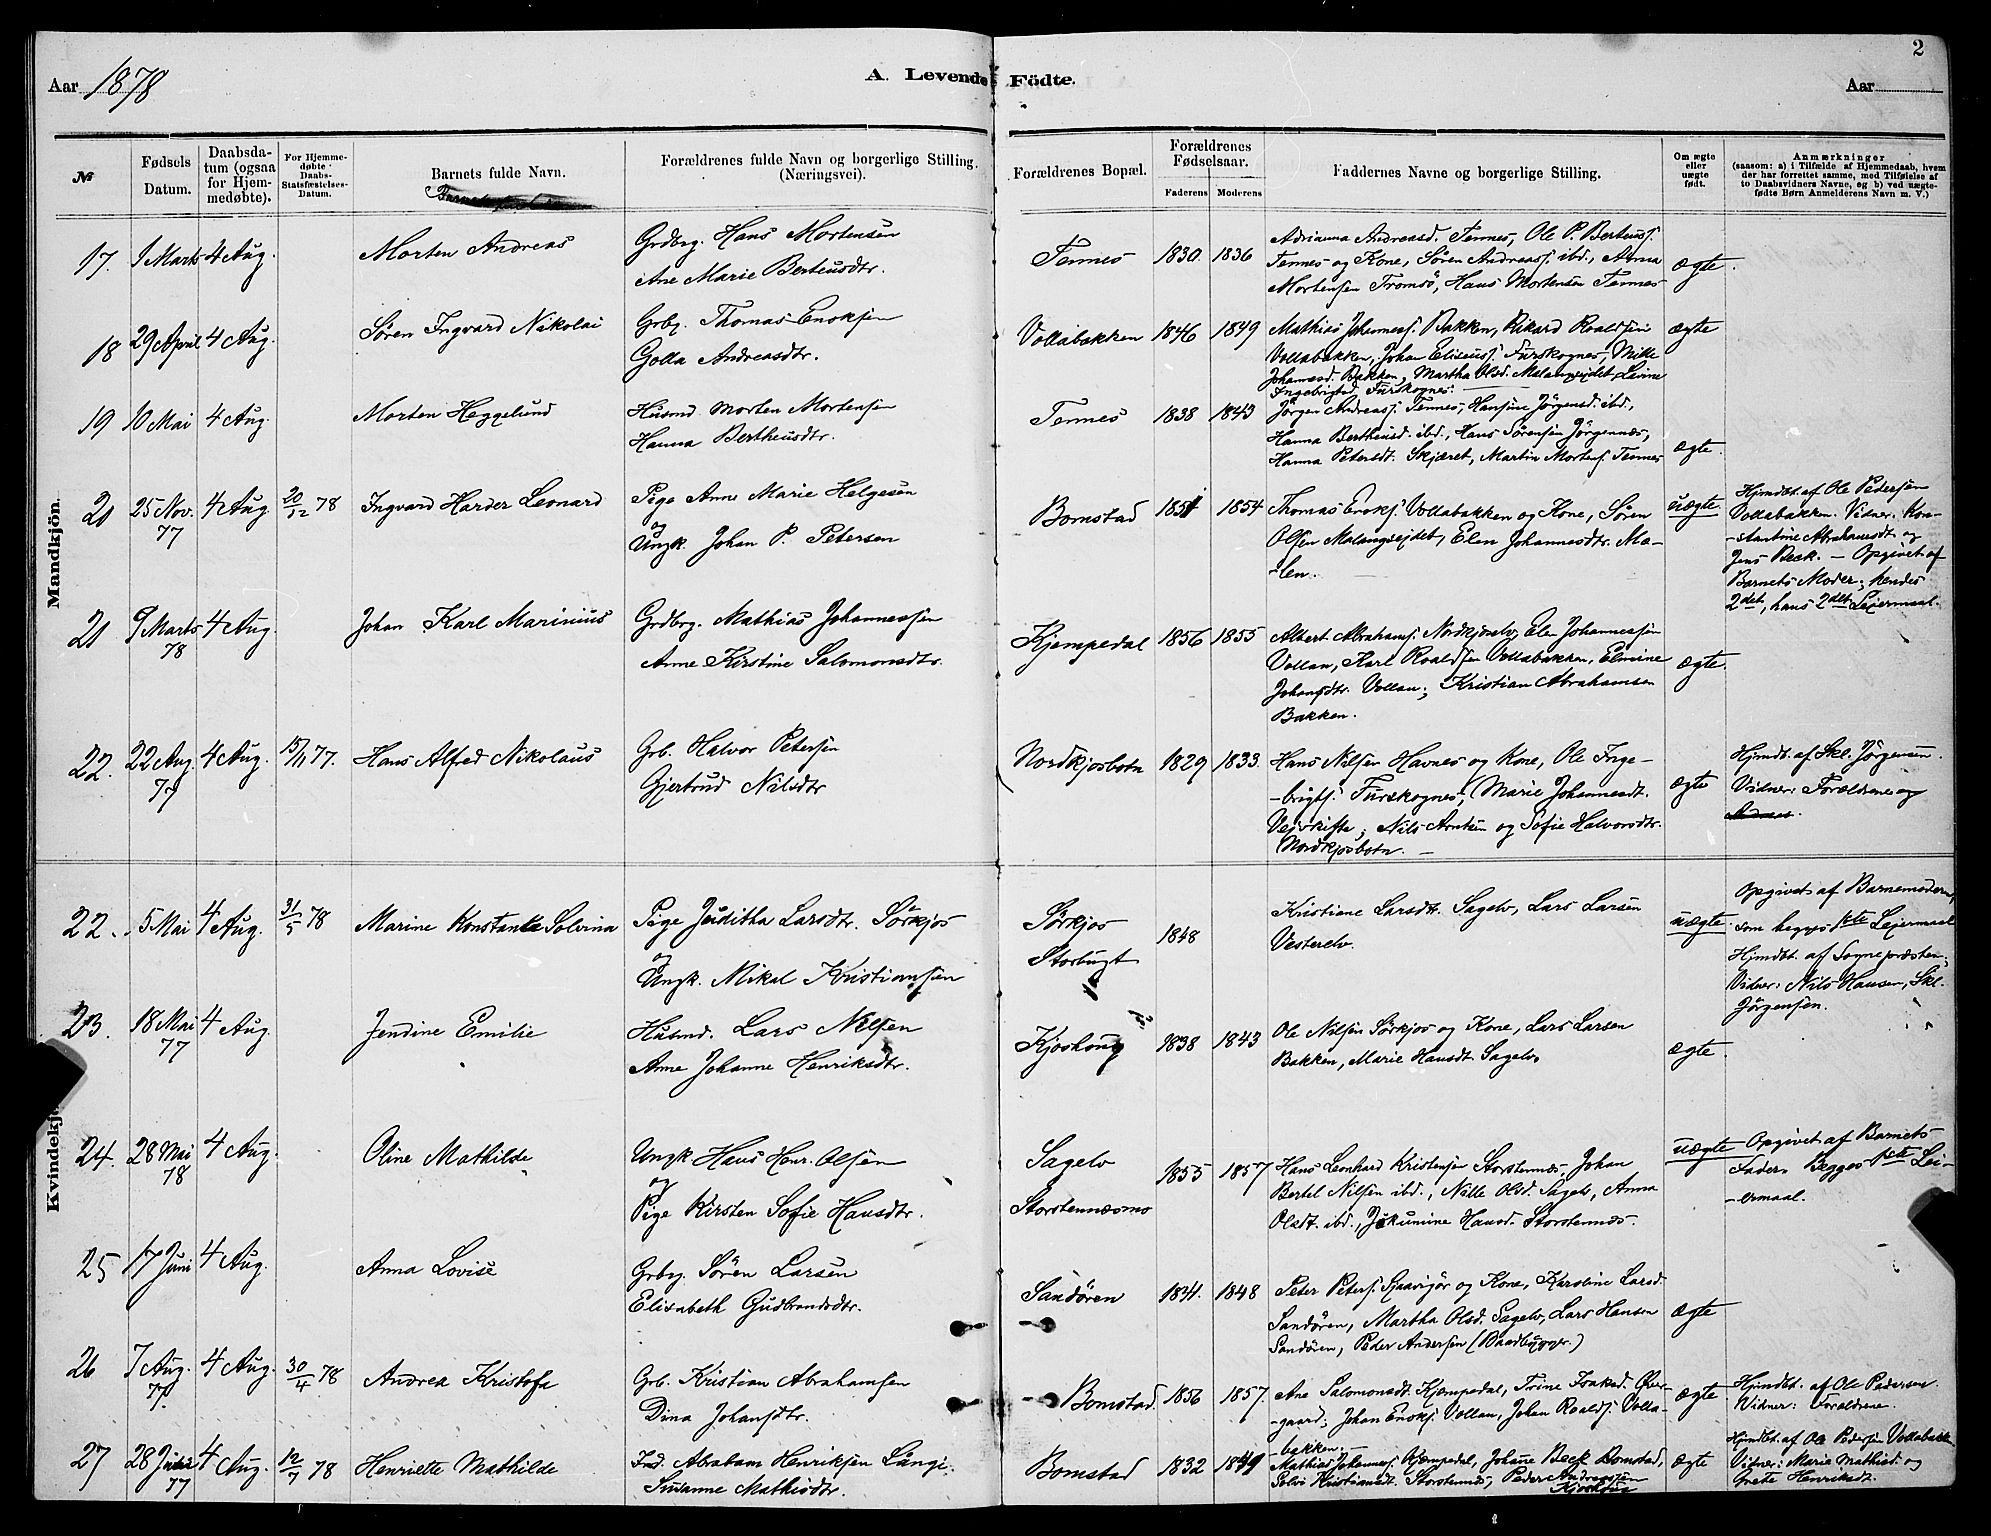 2
Aar 1878
A. Levende Födte.
Aar
№
Fødsels Datum.
Daabsdatum (ogsaa for Hjemmedøbte).
For Hjemmedøbte Daabs-Statsfæstelses-Datum.
Barnets fulde Navn.
Forældrenes fulde Navn og borgerlige Stilling. (Næringsvei).
Forældrenes Bopæl.
Forældrenes Fødselsaar.
Faderens
Moderens
Faddernes Navne og borgerlige Stilling.
Om ægte eller uægte født.
Anmærkninger
(saasom: a) i Tilfælde af Hjemmedaab, hvem
der har forrettet samme, med Tilføielse af
to Daabsvidners Navne, og b) ved uægte-
fødte Børn Anmelderens Navn m. V.)
Mandkjön.
17. 1 Marts 4 Aug. Morten Andreas
Grdbrg. Hans Mortensen
Ane Marie Bertheusdtr.
Tennes 1830 1836
Adrianna Andreasd. Tennes, Ole P. Bertheuss.
Tennes og Kone, Søren Andreass. ibd., Anna
Mortensen Tromsö, Hans Mortensen Tennes
ægte.
18 29 April 4 Aug. Søren Ingvard Nikolai
Grbg. Thomas Enoksen
Golla Andreasdtr.
Vollabakken 1846 1849
Mathias Johanness. Bakken, Rikard Roaldsen
Vollabakken, Johan Eliseuss. Furskognes, Mille
Johannesd. Bakken, Martha Olsd. Malangseidet, Levine
Ingebrigtsd. Furskognes.
ægte
19 10 Mai 4 Aug. Morten Heggelund
Husmd. Morten Mortensen
Hanna Bertheusdtr.
Tennes 1838 1843
Jörgen Andreass. Tennes, Hansine Jörgensd. ibd.,
Hanna Bertheusd. ibd., Hans Sørensen Jörgennæs,
Hanna Petersdt. Skjæret, Martin Mortens. Tennes
ægte.
21 25 Nov. 77 4 Aug 20/12 78 Ingvard Harder Leonard
Pige Anne Marie Helgesen
og
Ungk. Johan P. Petersen
Bomstad 1851 1854
Thomas Enoks. Vollabakken og Kone, Søren
Olsen Malangseidet, Elen Johannesdtr. Ma-
-len.
uægte.
Hjmdbt. af Ole Pedersen
Vollabakken. Vidner: Kon-
-stantine Abrahamsdt. og
Jens Beck. — Opgivet af
Barnets Moder; hendes
2det, hans 2det Leiermaal.
21 9 Marts 78 4 Aug. Johan Karl Marinius
Grdbrg. Mathias Johannessen
Anne Kirstine Salomonsdtr.
Kjempedal 1856 1855
Albert Abrahams. Nordkjoselv, Elen Johannessen
Vollan, Karl Roaldsen Vollabakken, Elmine
Johansdtr. Vollan; Kristian Abrahamsen
Bakken.
ægte.
22. 22 Aug. 77 4 Aug. 15/11 77. Hans Alfred Nikolaus
Grb. Halvor Petersen
Gjertrud Nilsdtr
Nordkjosbotn 1829 1833.
Hans Nilsen Havnes og Kone, Ole Inge-
-brigts. Furskognes, Marie Johannesdt.
Veivskifte; Nils Arntsen og Sofie Halvorsdtr.
Nordkjosbotn. —
ægte
Hjmdt. af Skl. Jörgensen.
Vidner: Forældrene og
Kvindekjö
22. 5 Mai 4 Aug. 31/5 78 Marine Konstanse Solvina
Pige Juditha Larsdtr. Sörkjos
og
Ungk. Mikal Kristiansen
Sörkjos
Storbugt
1848
Kristiane Larsdtr. Sagelv, Lars Larsen
Vesterelv.
uægte.
Opgivet af Barnemoderen,
som begges 1ste Leiermaal
Hjmdbt. af Sognepræsten.
Vidner: Nils Hansen, Skl.
Jörgensen.
23. 18 Mai 77 4 Aug. Jendine Emilie
Husmd. Lars Nilsen
Anne Johanne Henriksdtr.
Kjoshoug 1838 1843
Ole Nilsen Sörkjos og Kone, Lars Larsen
Bakken, Marie Hansdt. Sagelv
ægte.
24. 28 Mai 78 4 Aug. Oline Mathilde
Ungk Hans Henr. Olsen
og
Pige Kirsten Sofie Hansdtr.
Sagelv
Storstennæsmo
1855 1857
Hans Leonhard Kristensen Storstennæs, Johan
Bertel Nilsen ibd., Nille Olsd. Sagelv, Anna
Olsdt. ibd., Jakumine Hansd. Storstennæs.
uægte
Opgivet af Barnets
Fader. Begges 1ste Lei-
-ermaal.
25 17 Juni 4 Aug. Anna Lovise
Grbg. Sören Larsen
Elisabeth Gudbrandsdtr.
Sandören 1834. 1848
Peter Peters. og Kone, Karoline Larsd.
Sandören, Martha Olsd. Sagelv, Lars Hansen
Sandören, Peder Andersen (Baadbygger.)
ægte
26 7 Aug. 77. 4 Aug. 30/4 78 Andrea Kristofa
Grb. Kristian Abrahamsen
Dina Johansdtr.
Bomstad. 1856 1857.
Ane Salomonsdt. Kjempedal, Trine Isaksd. Över-
-gaard; Johan Enoks. Vollan, Johan Roalds. Volla-
-bakken. —
ægte
Hjmdbt. af Ole Pedersen
Vidner: Forældrene.
27 28 77 4 Aug. 12/7 78 Henriette Mathilde
Ind. Abraham Henriksen Långi.
Susanne Mathisdtr.
Bomstad 1832 1849
Mathias Johanness. Kjempedal, Johane Beck Bomstad,
Solvi Kristiansdt. Storstennæs, Peder Andreassen
Kjoshoug
ægte
Hjmdbt. af Ole Pedersen Vollabakk.
Vidner: Marie Mathisd. og
Grete Henriksdt.